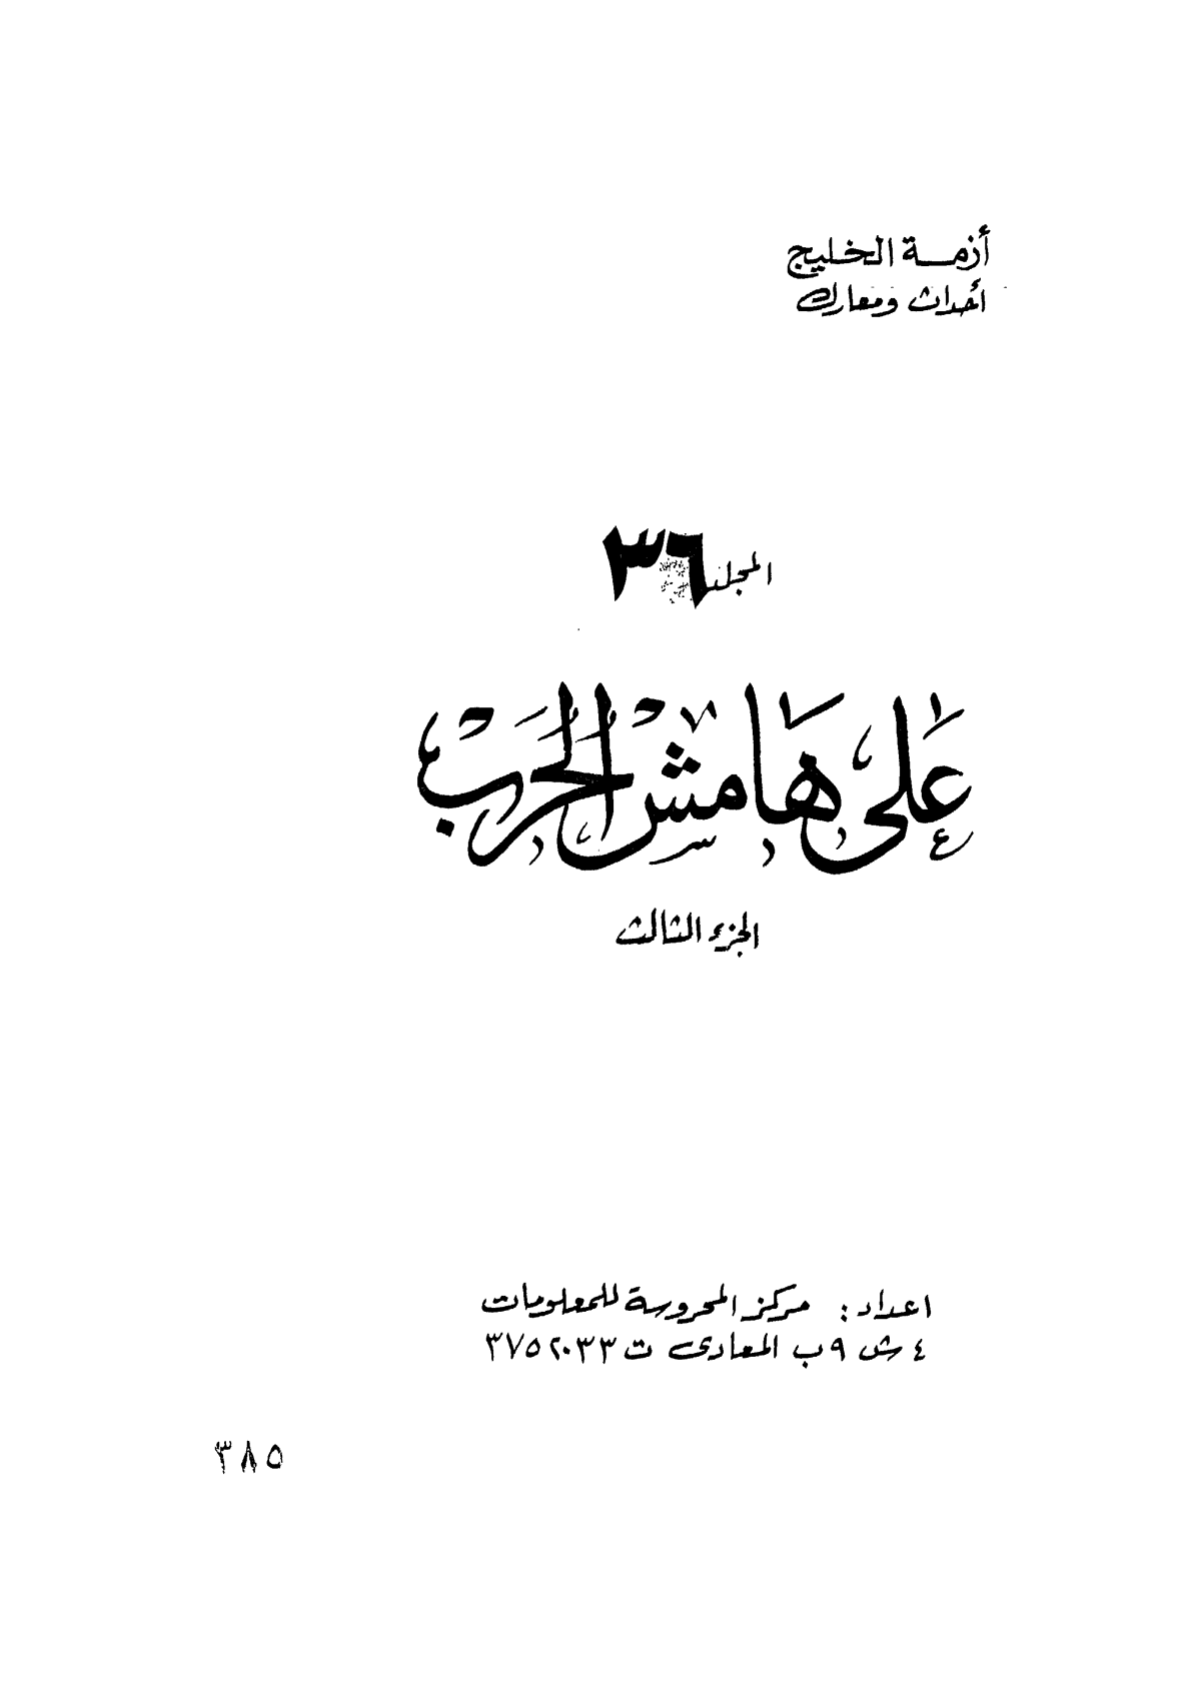 أزمة الخليج
أحداث ومعارك
المجلد ٣٦
عَلى هَامش الحَرب
الجزء الثالث
اعداد: مركز المحروسة للمعلومات
٤ ش ٩ ب المعادى ت ٣٧٥٢٠٣٣
٣٨٥